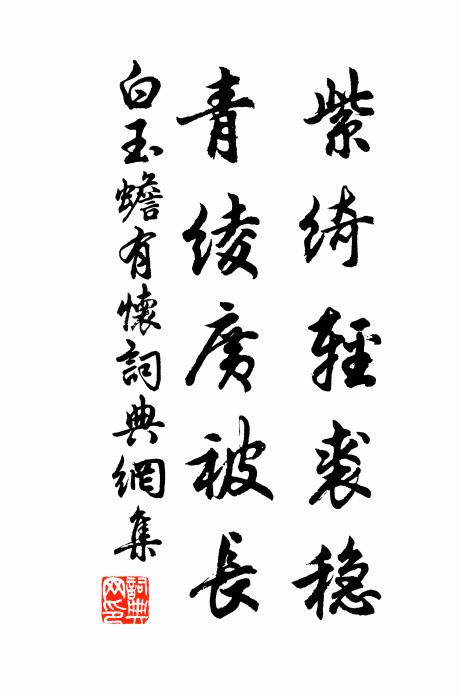 紫綺輕裘穩
青綾廣被長
白玉蟾有懷詞典網集
詞典
网印